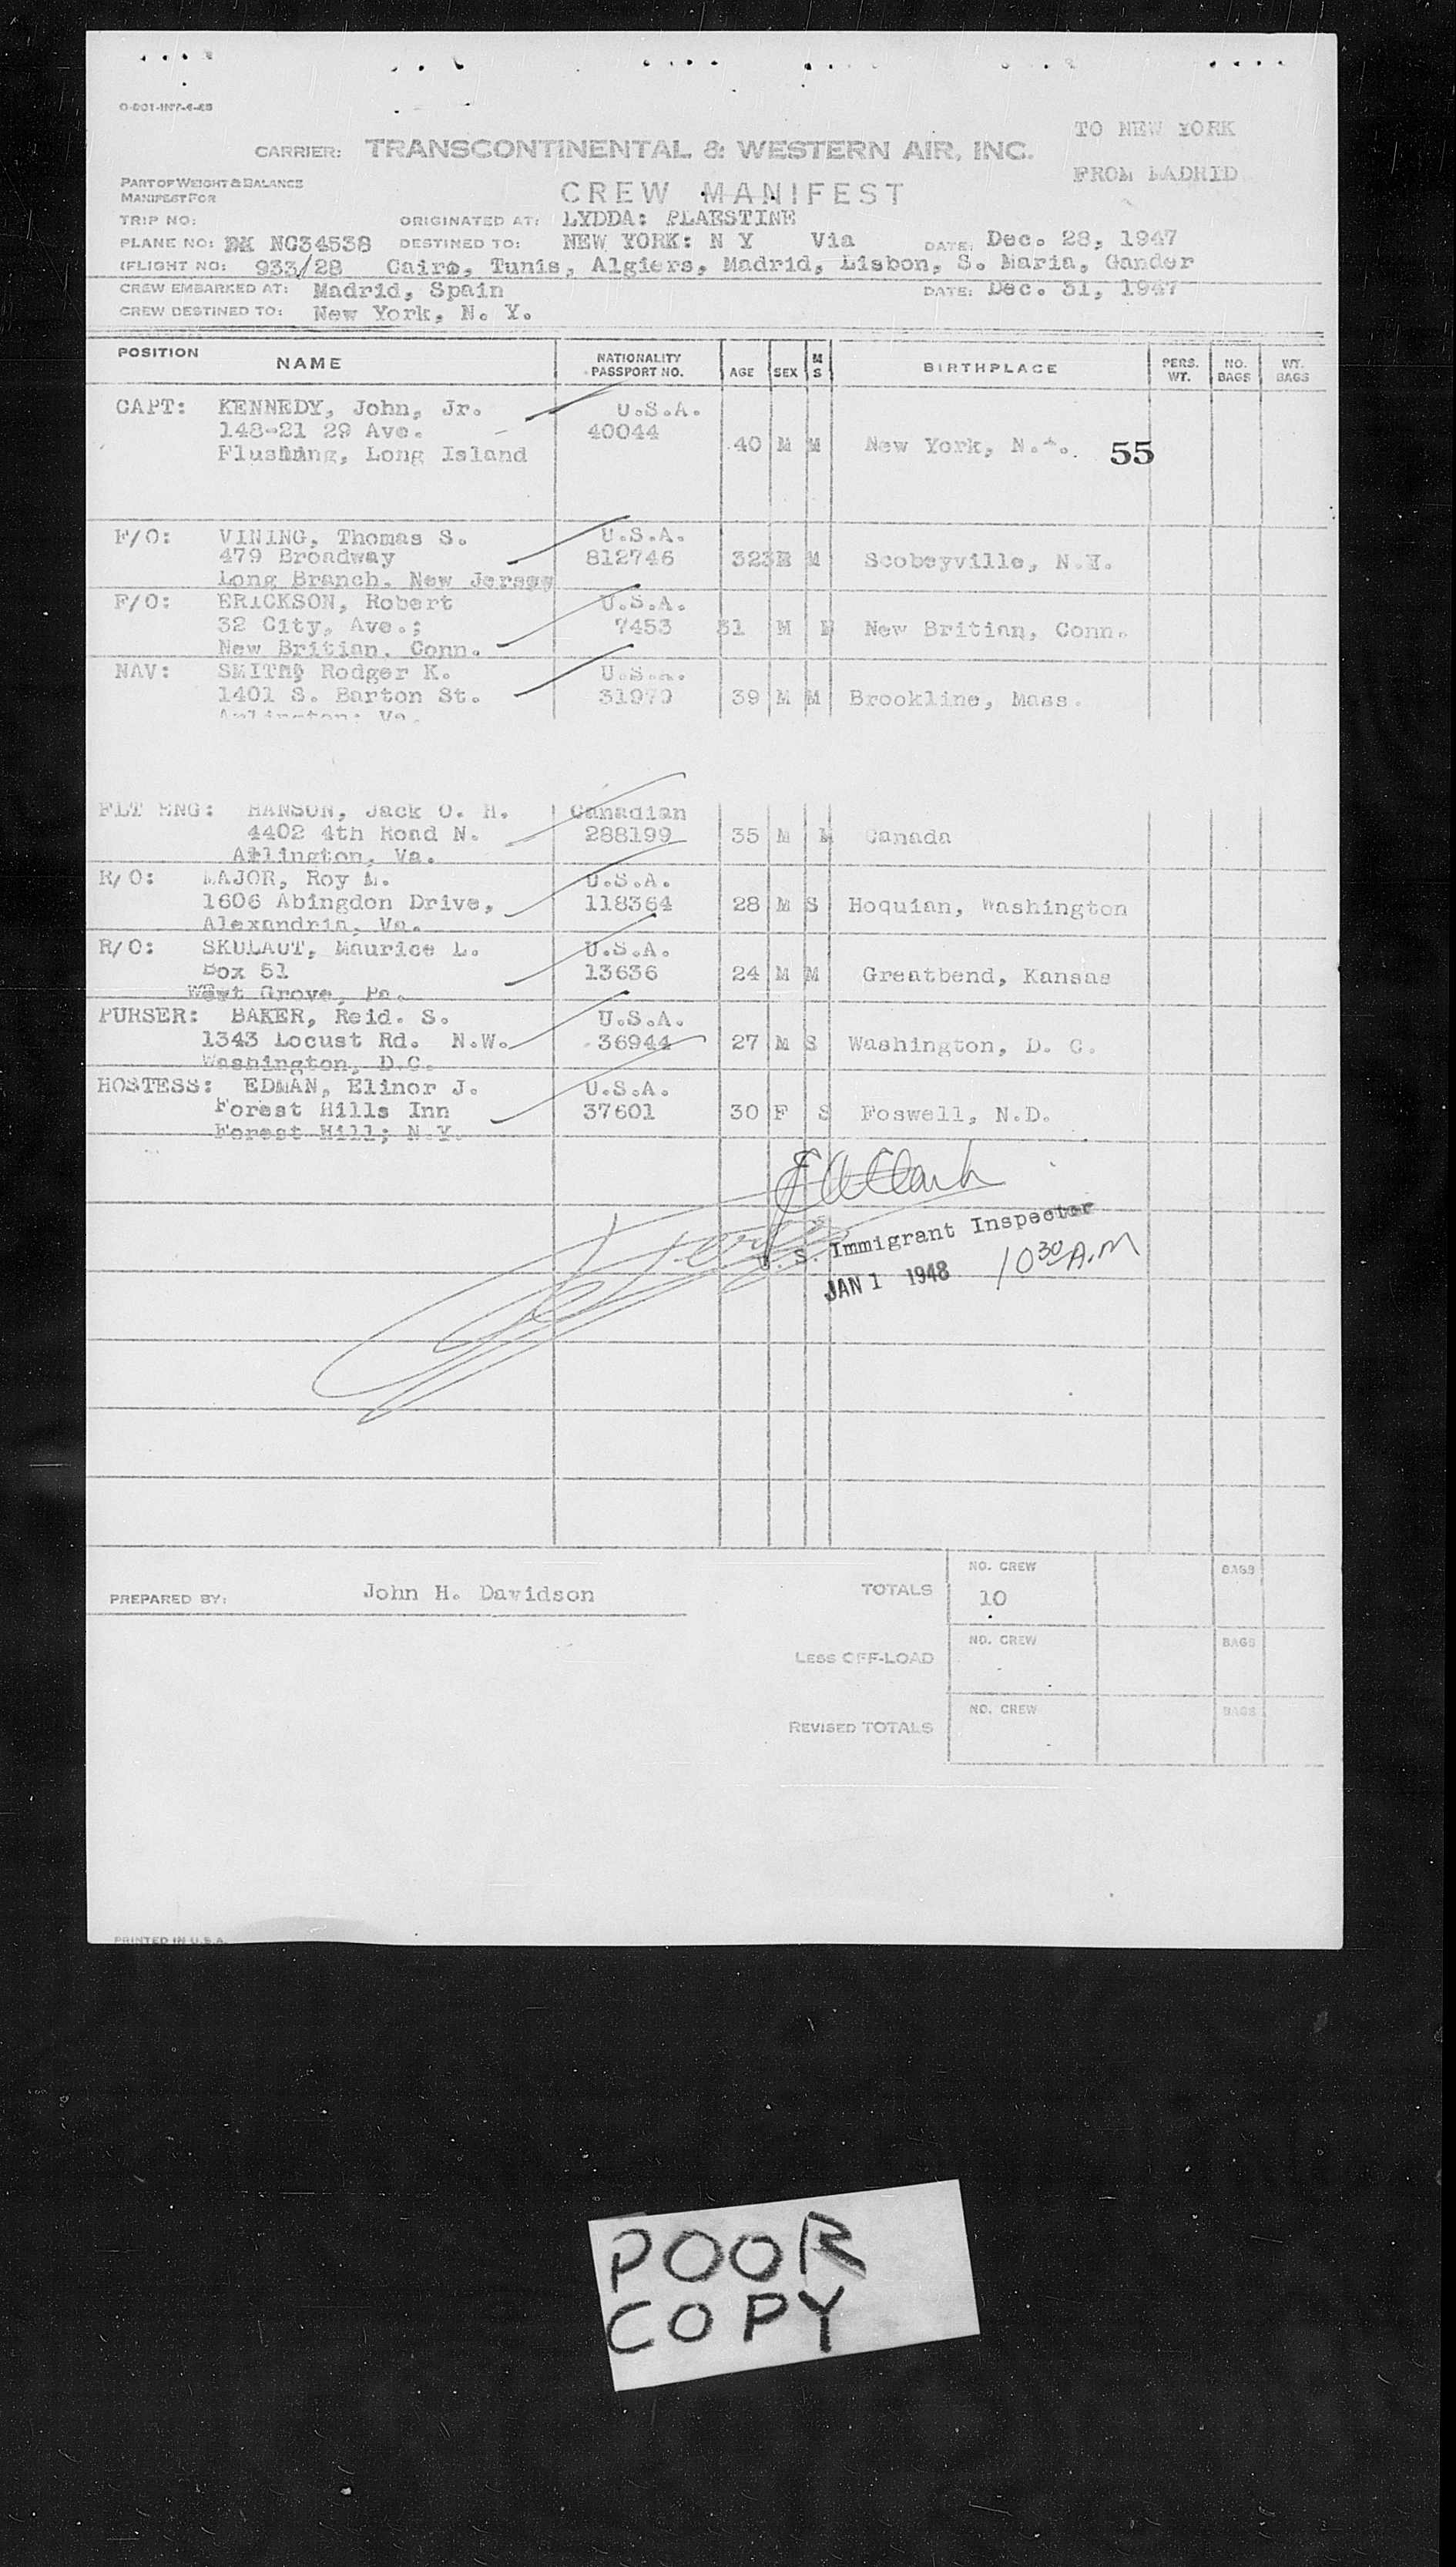 TO NEW YORK
CARRIER: TRANSCONTINENTAL & WESTERN AIR, INC.
FROM MADRID
PART OF WEIGHT & BALANCE
MANIFEST FOR
CREW MANIFEST
TRIP NO: ORIGINATED AT: LYDDA: PLAESTINE
PLANE NO: NC34538 DESTINED TO: NEW YORK: N Y Via DATE: Dec. 28, 1947
FLIGHT NO: 933/28 Cairo, Tunis, Algiers, Madrid, Lisbon, S. Maria, Gander
CREW EMBARKED AT: Madrid, Spain DATE: Dec. 31, 1947
CREW DESTINED TO: New York, N. Y.
POSITION NAME NATIONALITY PASSPORT NO. AGE SEX M S BIRTHPLACE PERS. WT. NO. BAGS WT. BAGS
CAPT: KENNEDY, John, Jr. U.S.A.
148-21 29 Ave. 40044 40 M M New York, N. 55
Flushing, Long Island
F/O: VINING, Thomas S. U.S.A.
479 Broadway 812746 32 M Scobeyville, N.
Long Branch. New Jersey
F/O: ERICKSON, Robert U.S.A.
32 City, Ave.; 7453 31 M New Britian, Conn.
New Britian. Conn.
NAV: SMITH, Rodger K. U.S.A.
1401 S. Barton St. 31979 39 M M Brookline, Mass.
Arlington: Va.
FLT ENG: HANSON, Jack O. H. Canadian
4402 4th Road N. 288199 35 M M Canada
Arlington, Va.
R/O: MAJOR, Roy M. U.S.A.
1606 Abingdon Drive, 118364 28 M S Hoquian, Washington
Alexandria, Va.
R/O: SKULAUT, Maurice L. U.S.A.
Box 51 13636 24 M M Greatbend, Kansas
West Grove, Pa.
PURSER: BAKER, Reid. S. U.S.A.
1343 Locust Rd. N.W. 36944 27 M S Washington, D. C.
Washington, D.C.
HOSTESS: EDMAN, Elinor J. U.S.A.
Forest Hills Inn 37601 30 F S Foswell, N.D.
Forest Hill; N.Y.
U.S. Immigrant Inspector
JAN 1 1948 10 30 A.M
PREPARED BY: John H. Davidson
TOTALS NO. CREW 10 BAGS
LESS OFF-LOAD NO. CREW BAGS
REVISED TOTALS NO. CREW BAGS
PRINTED IN U.S.A.
POOR
COPY